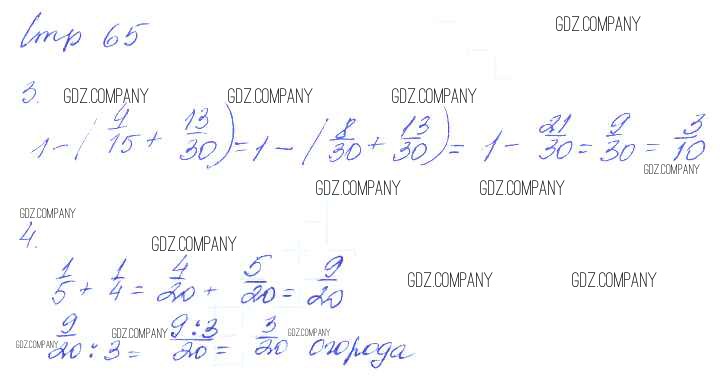 Стр 65
GDZ.COMPANY
3. GDZ.COMPANY GDZ.COMPANY GDZ.COMPANY
1 - (4/15 + 13/30) = 1 - (8/30 + 13/30) = 1 - 21/30 = 9/30 = 3/10
GDZ.COMPANY
GDZ.COMPANY GDZ.COMPANY
GDZ.COMPANY
4. GDZ.COMPANY
1/5 + 1/4 = 4/20 + 5/20 = 9/20
GDZ.COMPANY GDZ.COMPANY
9/20 : 3 = 9:3/20 = 3/20 огорода
GDZ.COMPANY GDZ.COMPANY GDZ.COMPANY